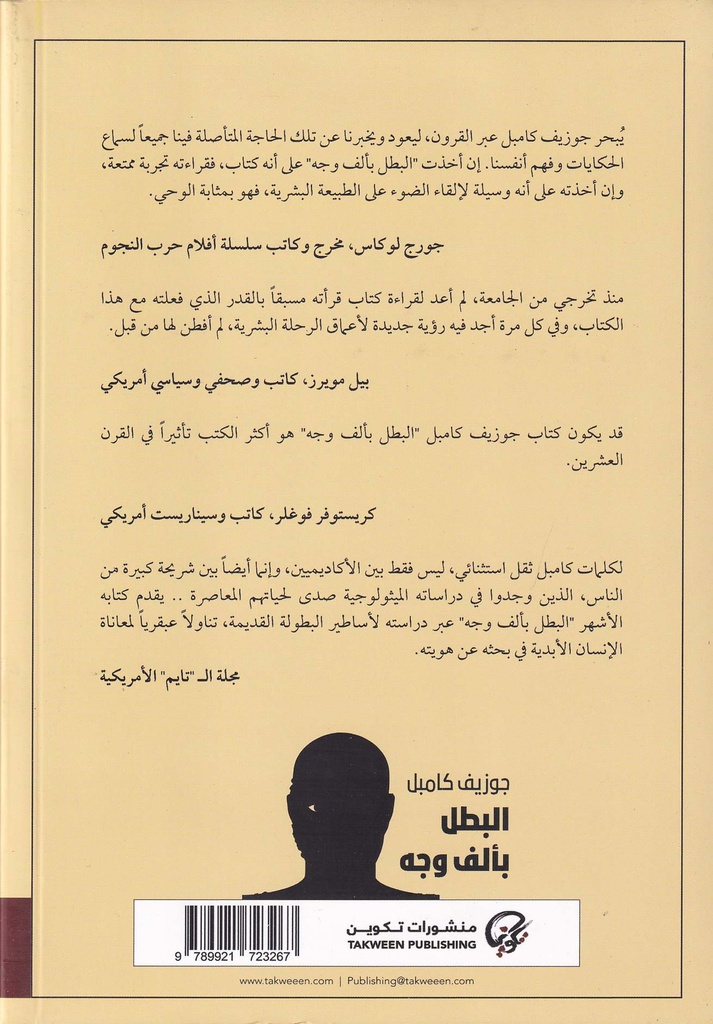 يُبحر جوزيف كامبل عبر القرون، ليعود ويخبرنا عن تلك الحاجة المتأصلة فينا جميعاً لسماع
الحكايات وفهم أنفسنا. إن أخذت "البطل بألف وجه" على أنه كتاب، فقراءته تجربة ممتعة،
وإن أخذته على أنه وسيلة لإلقاء الضوء على الطبيعة البشرية، فهو بمثابة الوحي.
جورج لوكاس، مخرج وكاتب سلسلة أفلام حرب النجوم
منذ تخرجي من الجامعة، لم أعد لقراءة كتاب قرأته مسبقاً بالقدر الذي فعلته مع هذا
الكتاب، وفي كل مرة أجد فيه رؤية جديدة لأعماق الرحلة البشرية، لم أفطن لها من قبل.
بيل مويرز، كاتب وصحفي وسياسي أمريكي
قد يكون كتاب جوزيف كامبل "البطل بألف وجه" هو أكثر الكتب تأثيراً في القرن
العشرين.
كريستوفر فوغلر، كاتب وسيناريست أمريكي
لكلمات كامبل ثقل استثنائي، ليس فقط بين الأكاديميين، وإنما أيضاً بين شريحة كبيرة من
الناس، الذين وجدوا في دراساته الميثولوجية صدى لحياتهم المعاصرة .. يقدم كتابه
الأشهر "البطل بألف وجه" عبر دراسته لأساطير البطولة القديمة، تناولاً عبقرياً لمعاناة
الإنسان الأبدية في بحثه عن هويته.
مجلة الـ "تايم" الأمريكية
جوزيف كامبل
البطل
بألف وجه
منشورات تكوين
TAKWEEN PUBLISHING
تكوين
9 789921 723267
www.takweeen.com | Publishing@takweeen.com